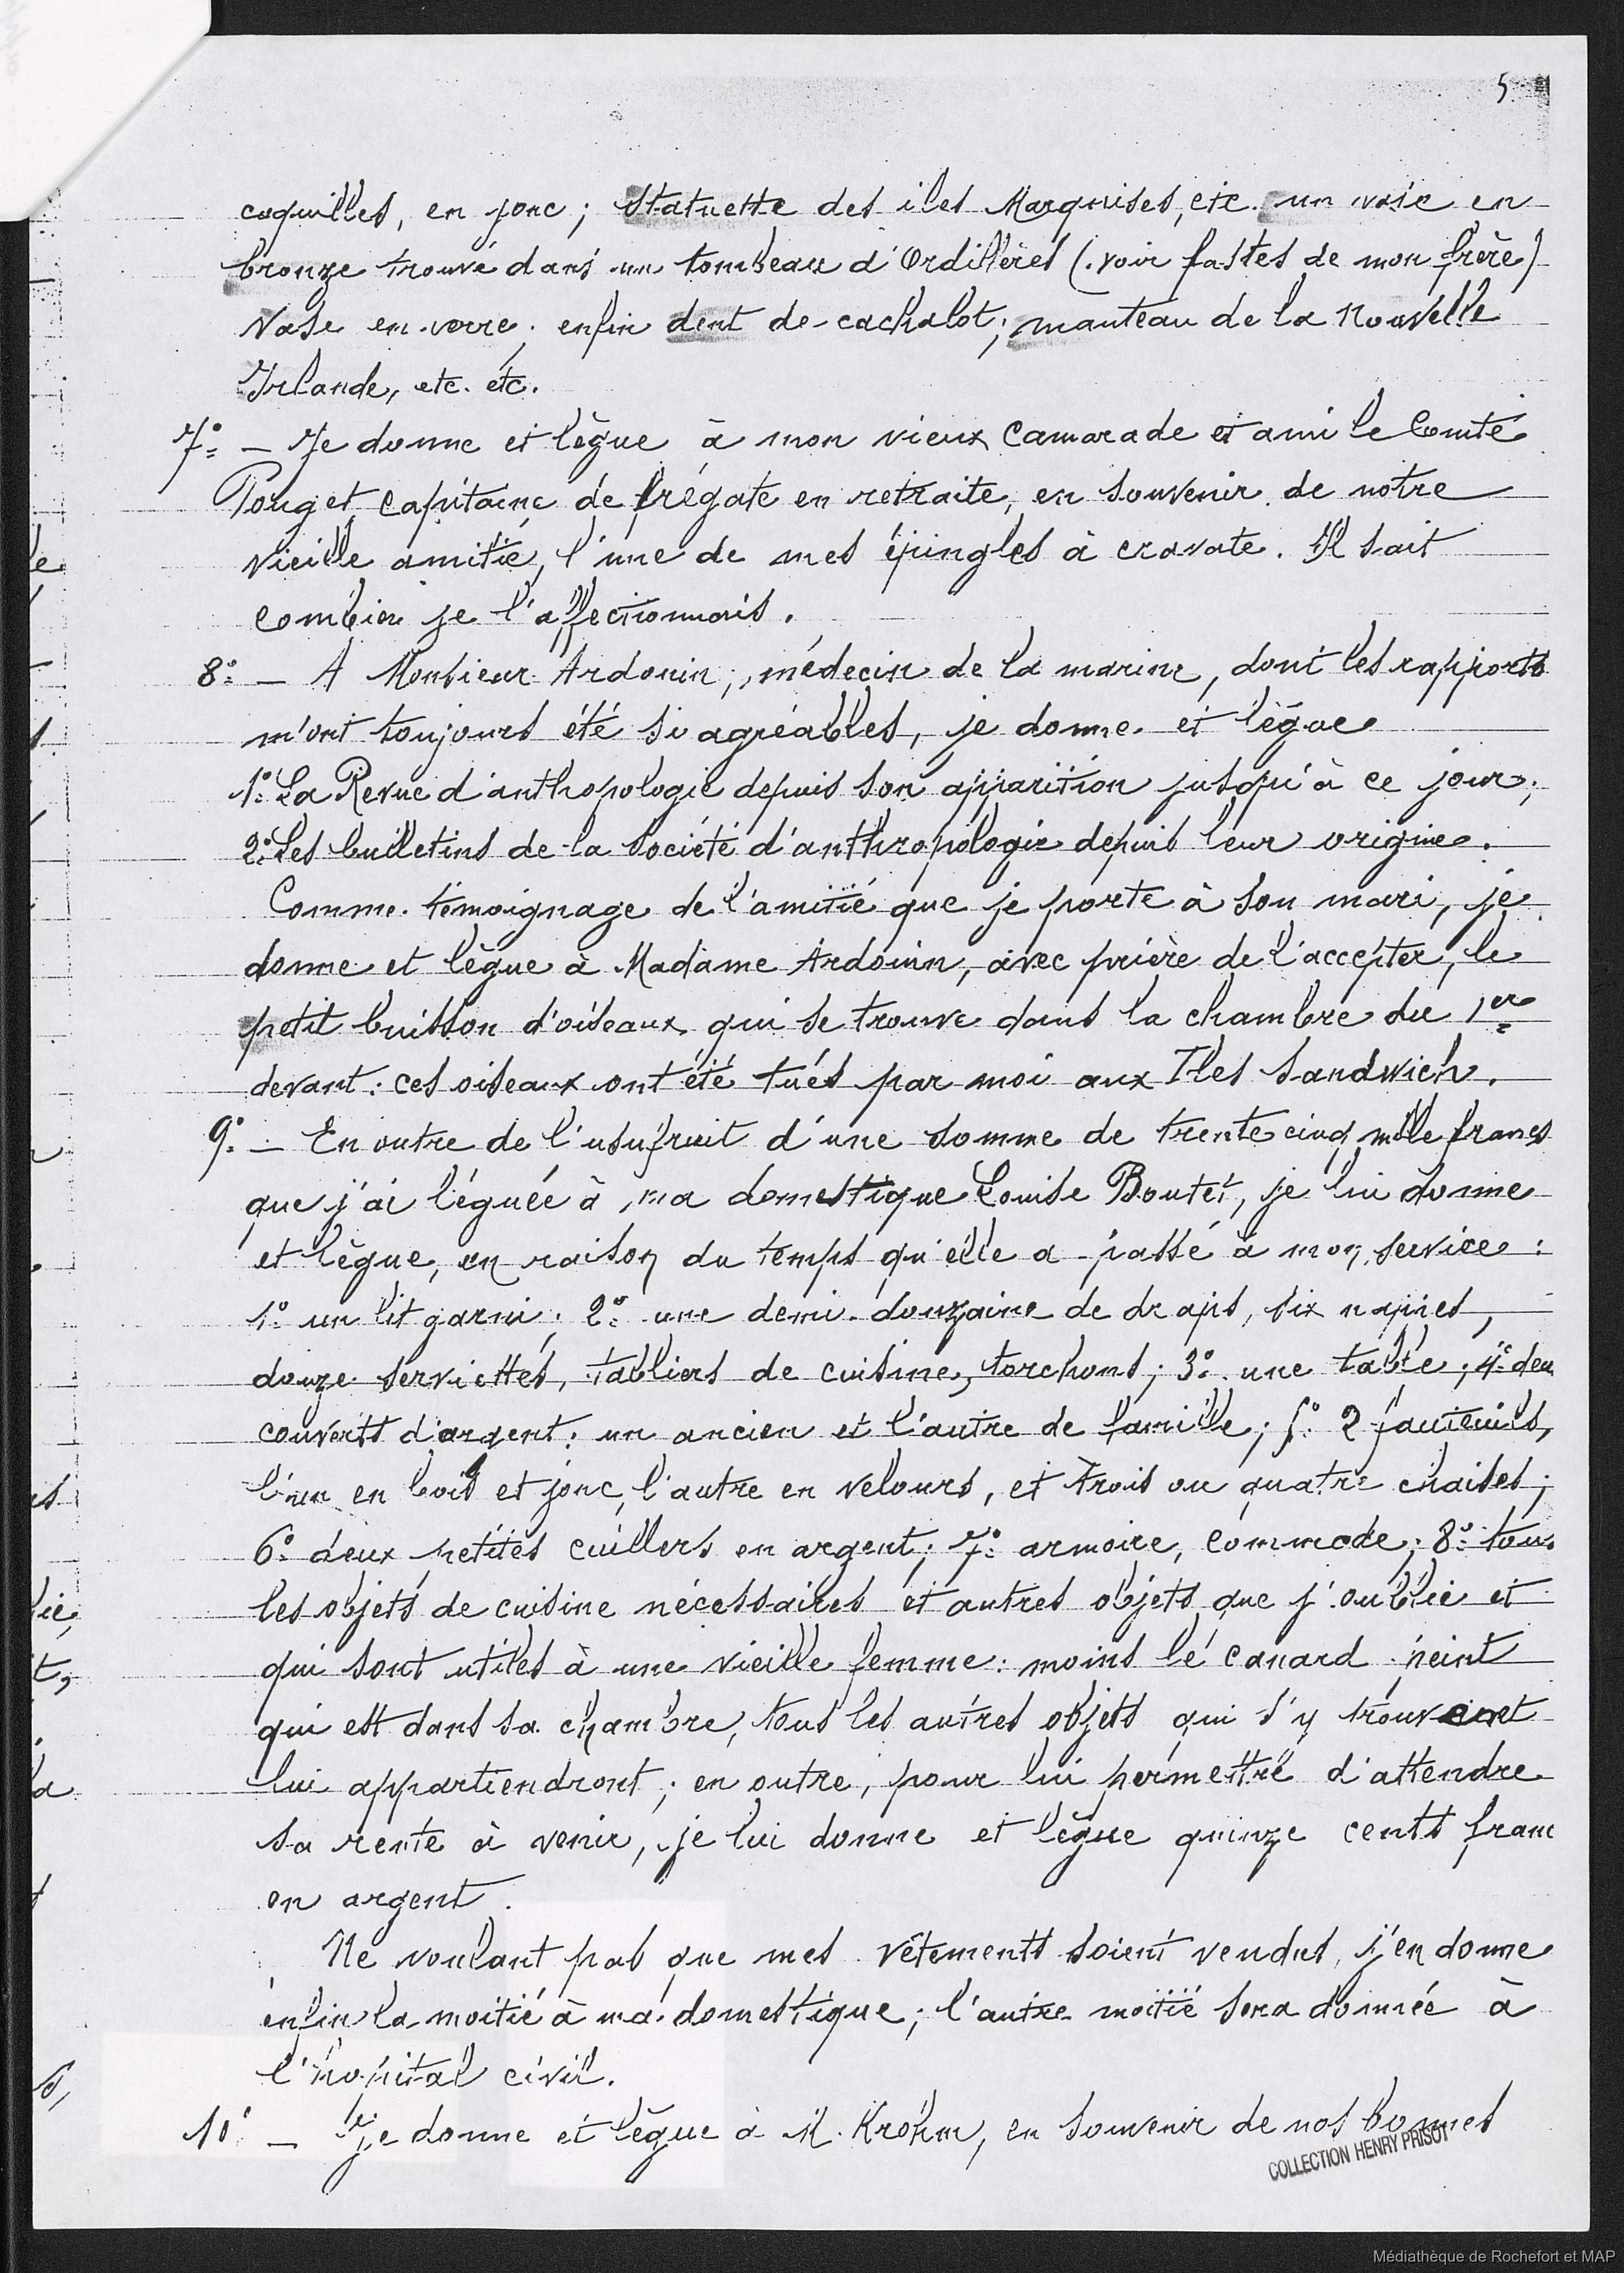 5
coquilles, en jonc; statuette des îles Marquises, etc. un vase en
bronze trouvé dans un tombeau d'Ordillères (voir fastes de mon frère)
Vase en verre; enfin dent de cachalot; manteau de la Nouvelle
Irlande, etc. etc.
7° — Je donne et lègue à mon vieux camarade et ami le Comte
Pouget, capitaine de frégate en retraite, en souvenir de notre
vieille amitié, l'une de mes épingles à cravate. Il sait
combien je l'affectionnais.
8° — A Monsieur Ardouin, médecin de la marine, dont les rapports
m'ont toujours été si agréables, je donne et lègue
1° La Revue d'anthopologie depuis son apparition jusqu'à ce jour;
2° Les bulletins de la Société d'anthropologie depuis leur origine.
Comme témoignage de l'amitié que je porte à son mari, je
donne et lègue à Madame Ardouin, avec prière de l'accepter, le
petit buisson d'oiseaux qui se trouve dans la chambre du 1er
devant: ces oiseaux ont été tués par moi aux Iles Sandwich.
9° — En outre de l'usufruit d'une somme de trente cinq mille francs
que j'ai léguée à ma domestique Louise Boutet, je lui donne
et lègue, en raison du temps qu'elle a passé à mon service:
1° un lit garni; 2° une demi-douzaine de draps, six nappes,
douze serviettes, tabliers de cuisine, torchons; 3° une table; 4° deu
couverts d'argent: un ancien et l'autre de famille; 5° 2 fauteuils,
l'un en bois et jonc, l'autre en velours, et trois ou quatre chaises;
6° deux petites cuillers en argent; 7° armoire, commode; 8° tous
les objets de cuisine nécessaires et autres objets que j'oublie et
qui sont utiles à une vieille femme: moins le canard peint
qui est dans sa chambre, tous les autres objets qui s'y trouvent
lui appartiendront; en outre, pour lui permettre d'attendre
sa rente à venir, je lui donne et lègue quinze cents franc
en argent.
Ne voulant pas que mes vêtements soient vendus, j'en donne
enfin la moitié à ma domestique; l'autre moitié sera donnée à
l'hôpital civil.
10° — Je donne et lègue à M. Krohm, en souvenir de nos bonnes
COLLECTION HENRY PRISOT
Médiathèque de Rochefort et MAP